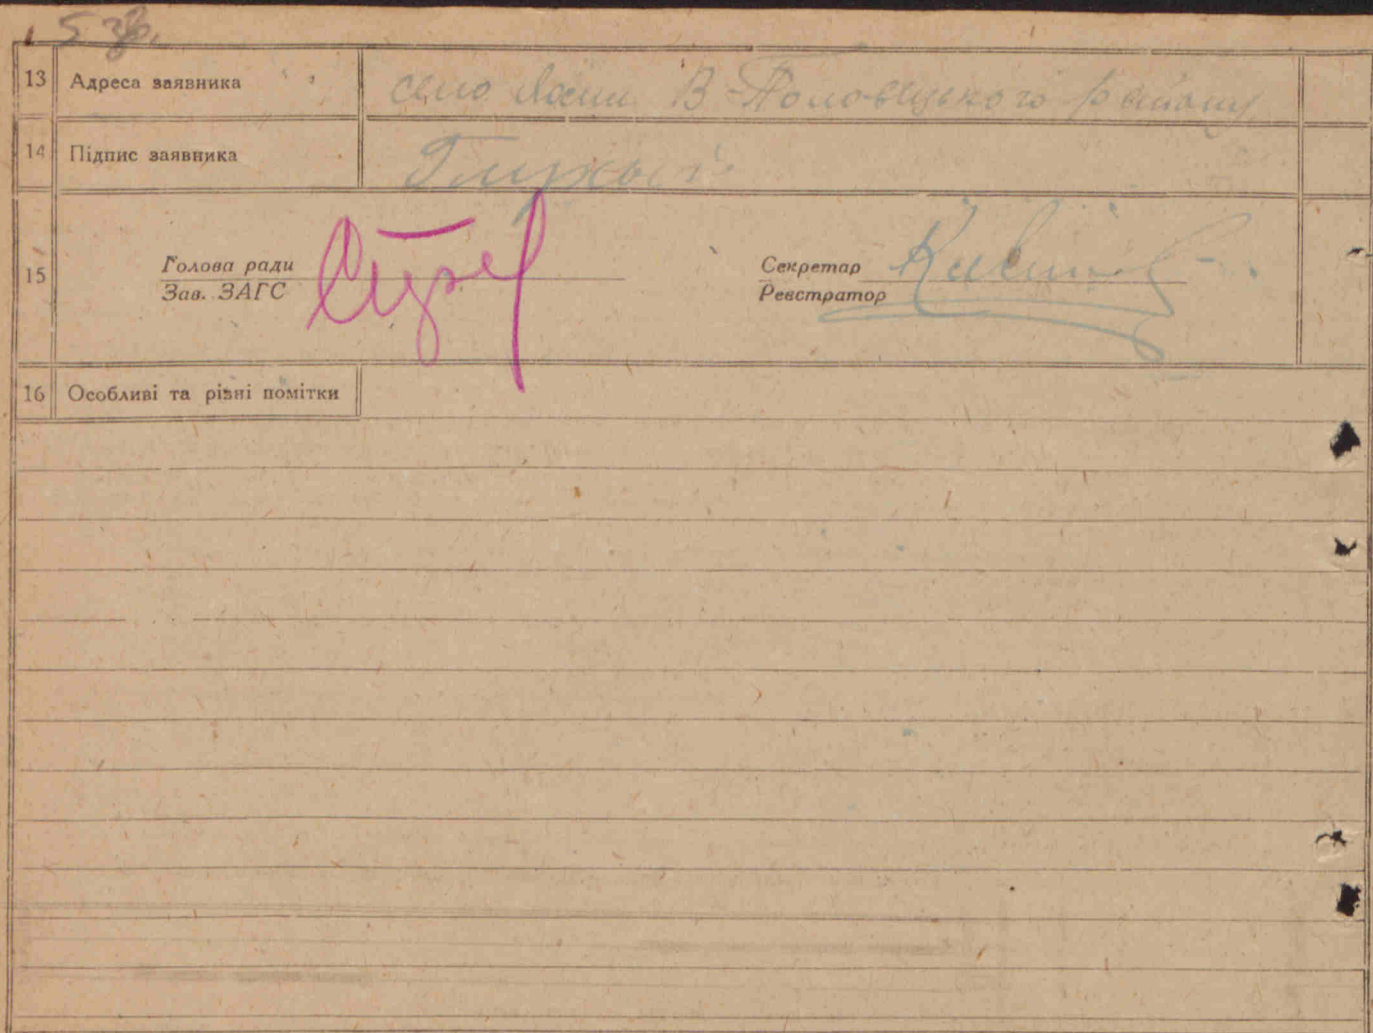 5 зв.
13 Адреса заявника село В-Половецького району
14 Підпис заявника
15 Голова ради
Зав. ЗАГС
Секретар
Реєстратор
16 Особливі та різні помітки